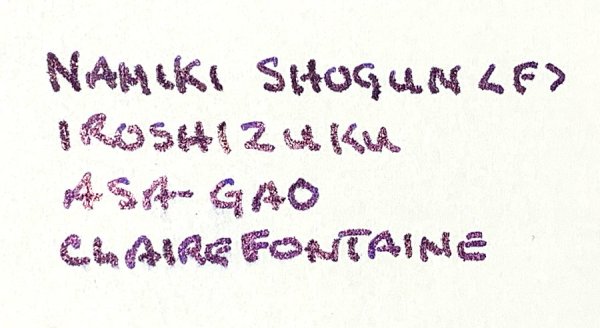 NAMIKI SHOGUN <F>
IROSHIZUKU
ASA-GAO
CLAIREFONTAINE